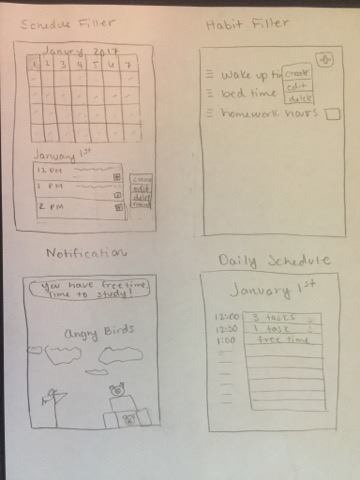 Schedule Filler
Janury 2017
1 2 3 4 5 6 7
January 1st
12 PM
1 PM
2 PM
create
edit
delet
Habit Filler
wake up
create
edit
delet
bed time
homework hours
Notification
You have free time,
time to study!
Angry Birds
Daily Schedule
January 1st
12:00 3 tasks
12:30 1 task
1:00 free time